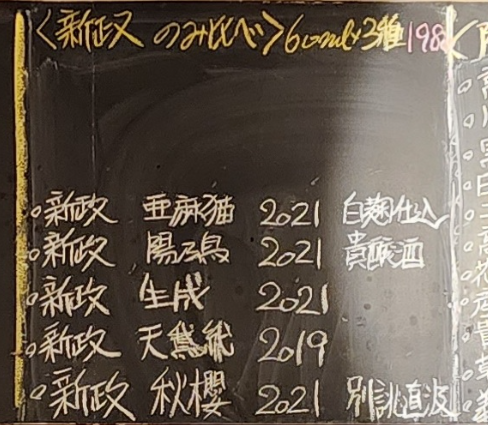 <新政 のみ比べ> 60ml×3種 198
新政 亜麻猫 2021 白麹仕込
新政 陽乃鳥 2021 貴醸酒
新政 生成 2021
新政 天鵞絨 2019
新政 秋櫻 2021 別誂直汲